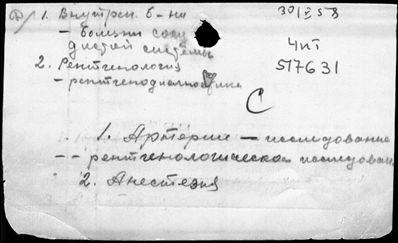 1. Внутрен. б-ни
– болезни сосу
дистой системы
2. Рентгенология
– рентгенодиагностика
30/IX 58
Чит
517631
С
1. Артерии — исследование
-- рентгенологическое исследован
2. Анестезия